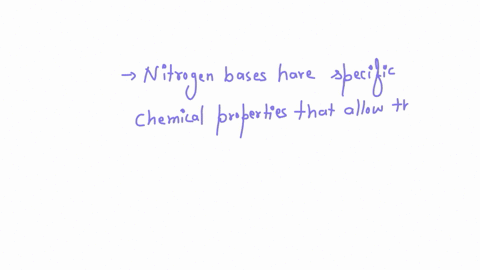 → Nitrogen bases have specific
chemical properties that allow th